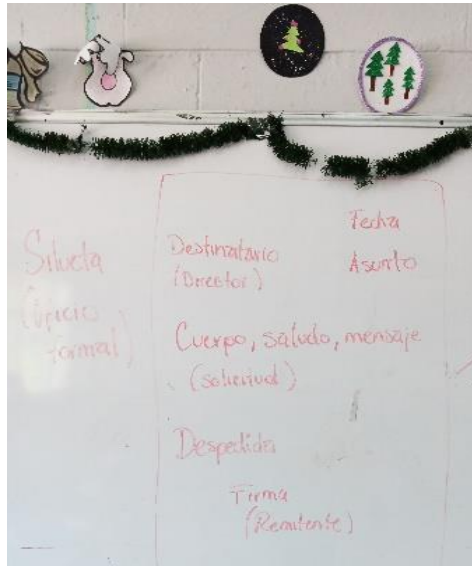 Silueta
(Oficio
formal)
Fecha
Destinatario
Asunto
(Director)
Cuerpo, saludo, mensaje
(solicitud)
Despedida
Firma
(Remitente)